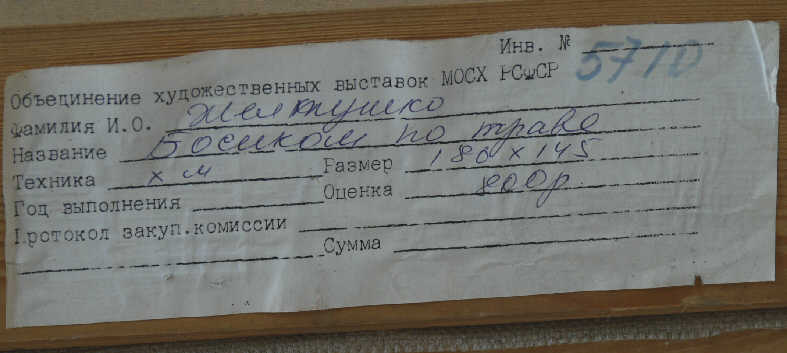 Инв. № 5710
Объединение художественных выставок МОСХ РСФСР
Фамилия И.О. Желтушко
Название Босиком по траве
Техника х м Размер 180 х 145
Год выполнения Оценка 800р
Протокол закуп.комиссии
Сумма